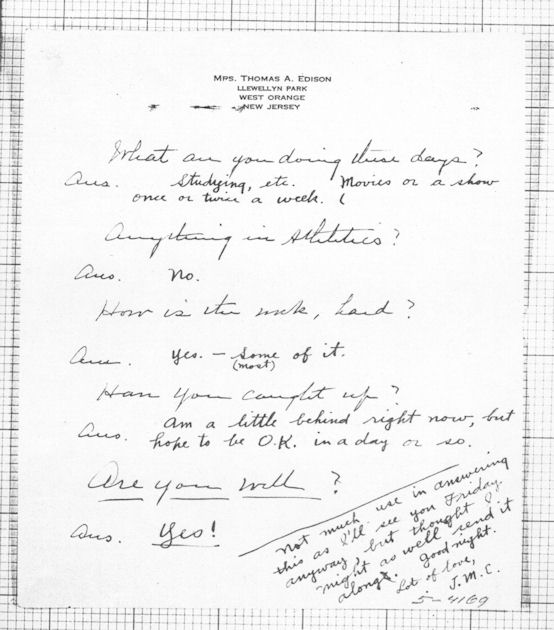 MRS. THOMAS A. EDISON
LLEWELLYN PARK
WEST ORANGE
NEW JERSEY
What are you doing these days?
Ans. Studying, etc. Movies or a show
once or twice a week. (
Anything in Athletics?
Ans. No.
How is the work, hard?
Ans. Yes. – Some of it.
(most)
Have you caught up?
Ans. am a little behind right now, but
hope to be O.K. in a day or so.
Are you well ?
Ans. Yes!
Not much use in answering
this as I'll see you Friday.
anyway, but thought I
might as well send it
along. Good night.
Lot of love,
J.M.C.
5-4169